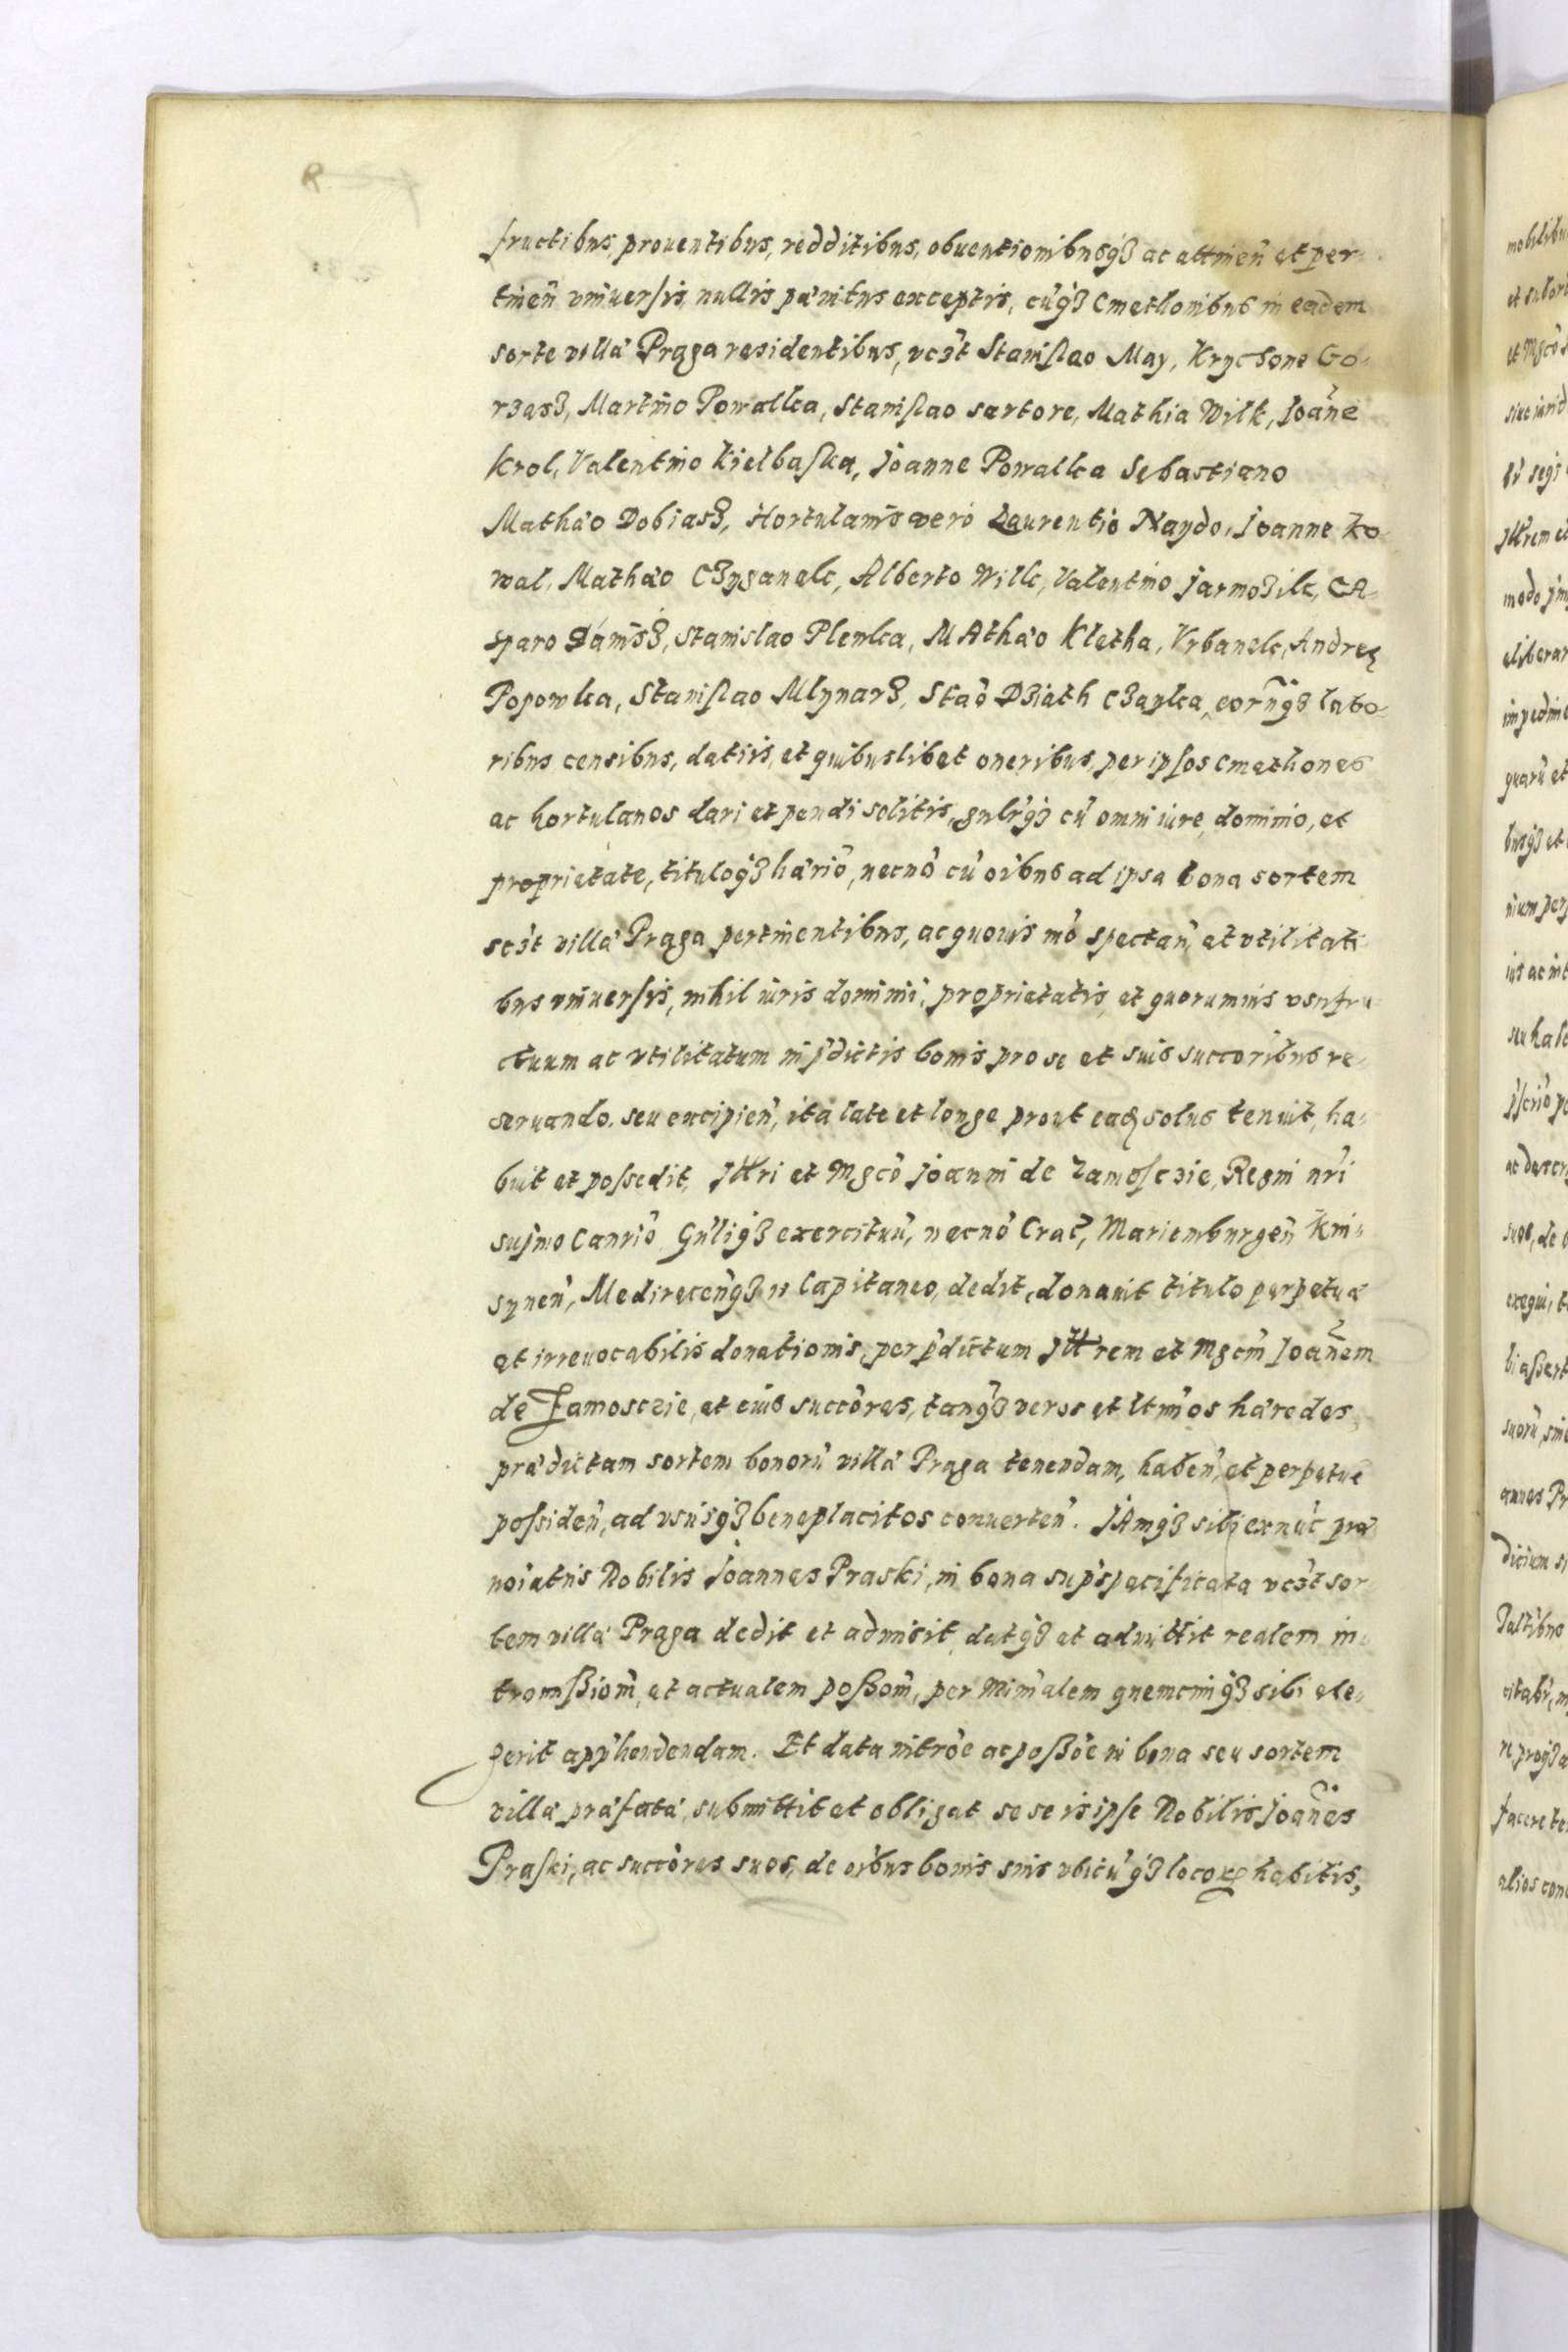 fructibus, prouentibus, redditibus, obuentionibusq3 ac attinen̄ et per-
tinen̄ vniuersis, nullis pænitus exceptis, cu᷄q3 Cmethonibus in eadem
sorte villæ Praga residentibus, vc3t Stanislao May, Krychone Go-
r3as3, Martino Powalka, Stanislao sartore, Mathia Wilk, Joan̄e
Krol, Valentino Kielbaska, Joanne Powalka Sebastiano
Mathæo Dobias3, Hortulanis vero Laurentio Naydo, Joanne Ko
wal, Mathæo C3yganek, Alberto Wilk, Valentino Jarmo3ik, CA-
sparo Danis3, Stanislao Plenka, MAthæo Kletha, Vrbanek, Andrea
Popowka, Stanislao Mlynar3, Stao᷄ D3iath C3ayka, eorn̄q3 labo-
ribus censibus, datiis, et quibuslibet oneribus, per ipsos cmethones
ac hortulanos dari et pendi solitis, gnlr᷄q3 cu᷄ omni iure, dominio, et
proprietate, tituloq3 hærio᷄, necno᷄ cu᷄ oi᷄bus ad ipsa bona sortem
sc3t villæ Praga pertinentibus, ac quouis mo᷄ spectan᷄, et vtilitati
bus vniuersis, nihil iuris dominii, proprietatis, et quorumuis vsufru-
ctuum ac vtilitatum in p᷄dictis bonis pro se et suis succoribus re-
seruando, seu excipien᷄, ita late et longe prout eaq solus tenuit, ha-
buit et possedit, Jllri et Mgco᷄ Joanni de Zamosczie, Regni nr᷄i
supmo Canrio᷄ Gn᷄liq3 exercituu᷄, necno᷄ Crac᷄, Marienburgen᷄ Kni-
synen᷄, Medirecen᷄q3 rc Capitaneo, dedit, donauit titulo perpetuæ
et irreuocabilis donationis, per p᷄dictum Jllrem et Mgcm᷄ Joan̄em
de Zamosczie, et eius succo᷄res, tanq᷄3 veros et ltim᷄os hæredes
prædictam sortem bonoru᷄ villæ Praga tenendam, haben᷄, et perpetue
possiden᷄, ad vsus᷄q3 beneplacitos conuerten᷄. JAmq3 sibi ex nu᷄c præ
noi᷄atus Nobilis Joannes Praski, in bona sup᷄specificata vc3t sor
tem villæ Praga dedit et admisit, datq3 et admittit realem in-
tromißiom᷄, et actualem poßom᷄, per Min᷄alem quemcunq3 sibi ele-
gerit app᷄hendendam. Et data intro᷄e ac poßo᷄e in bona seu sortem
villæ præfatæ, submittit et obligat sese is ipse Nobilis Joan̄es
Praski, ac succo᷄res suos, de oi᷄bus bonis suis vbicu᷄q3 locoꝝ habitis,